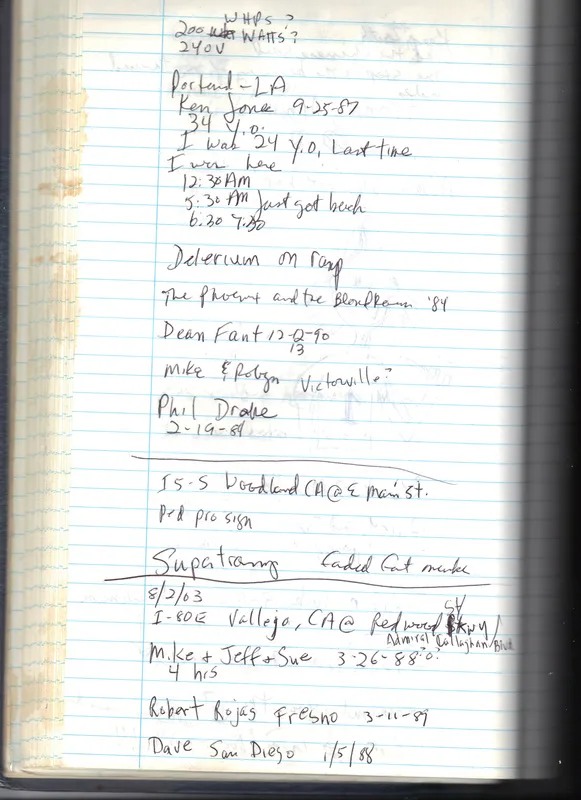 WHPS ?
200 WATTS ?
240V
Portend - LA
Ken Jones 9-25-87
34 Y.O.
I was 24 Y.O. Last time
I was here
12:30 AM
5:30 AM Just got back
6:30 7:30
Delerium on ramp
The Phoenix and the '84
Dean Fant 12-12-90
13
Mike & Robyn Victorville?
Phil Drake
2-19-84
I5-S Woodland CA @ E Main St.
Ped pro sign
Supatramp faded fat
8/2/03
I-80E Vallejo, CA @ Redwood St
Pkwy /
Admiral Callaghan / Blvd
Mike + Jeff + Sue 3-26-88?
4 hrs
Robert Rojas Fresno 3-11-89
Dave San Diego 1/5/88